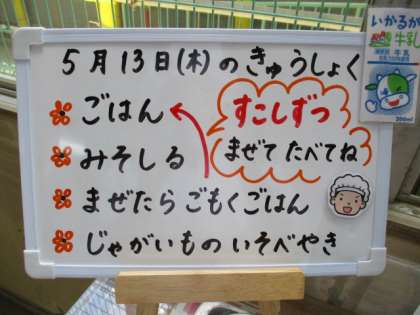 5月13日(木)のきゅうしょく
ごはん
すこしずつ
まぜて たべてね
みそしる
まぜたら ごもくごはん
じゃがいもの いそべやき
いかるが
牛乳
200ml